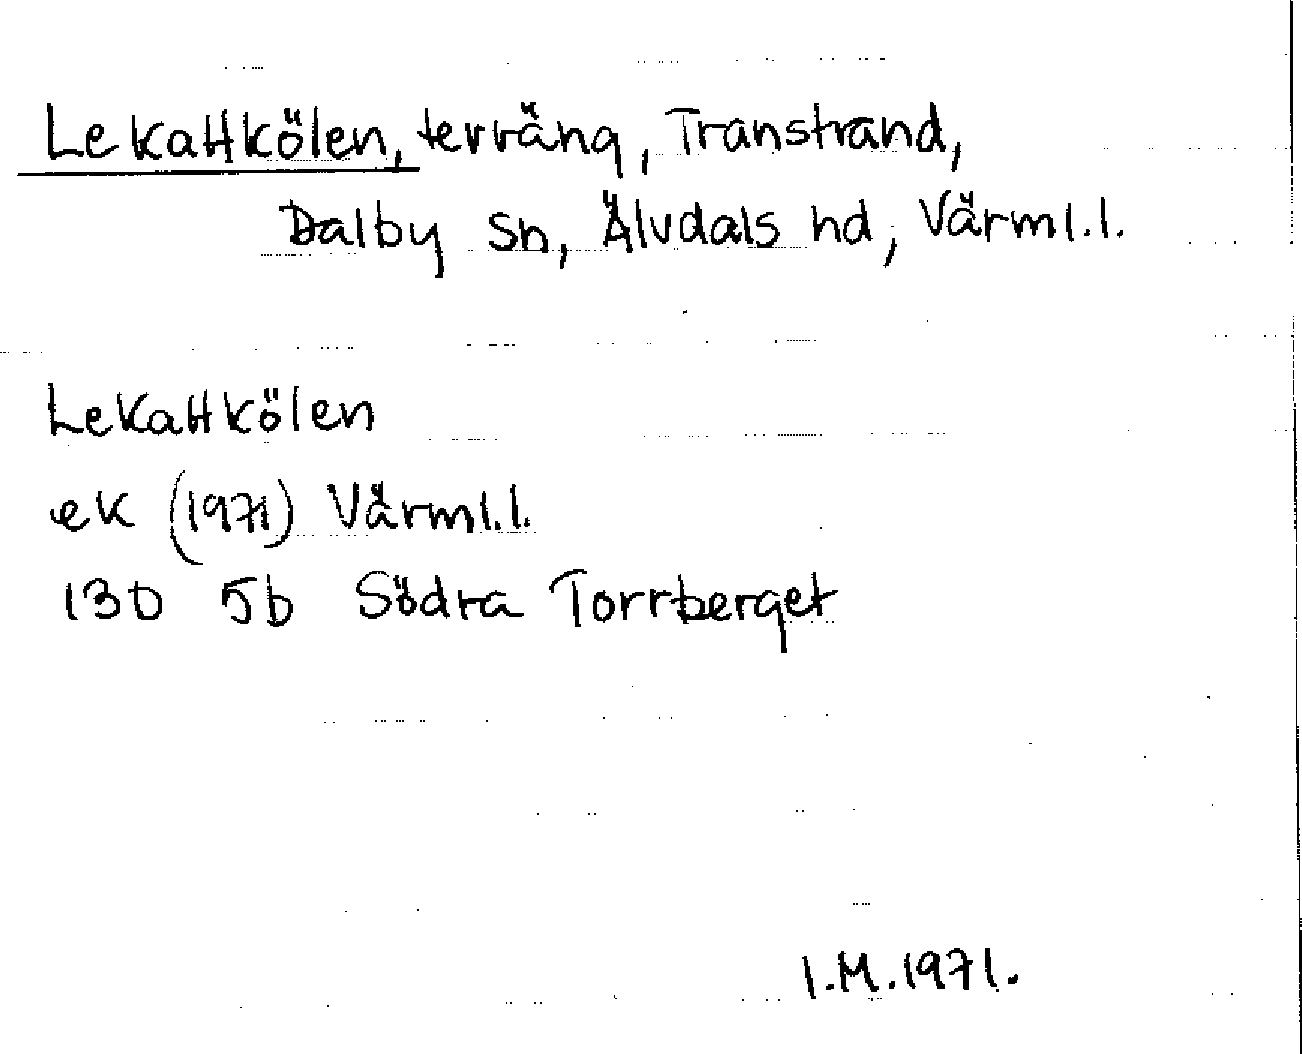 Lekattkölen, terräng, Transtrand,
Dalby sn, Älvdals hd, Värml.l.
Lekattkölen
ek (1971) Värml.l.
13D 5b Södra Torrberget
I.M.1971.